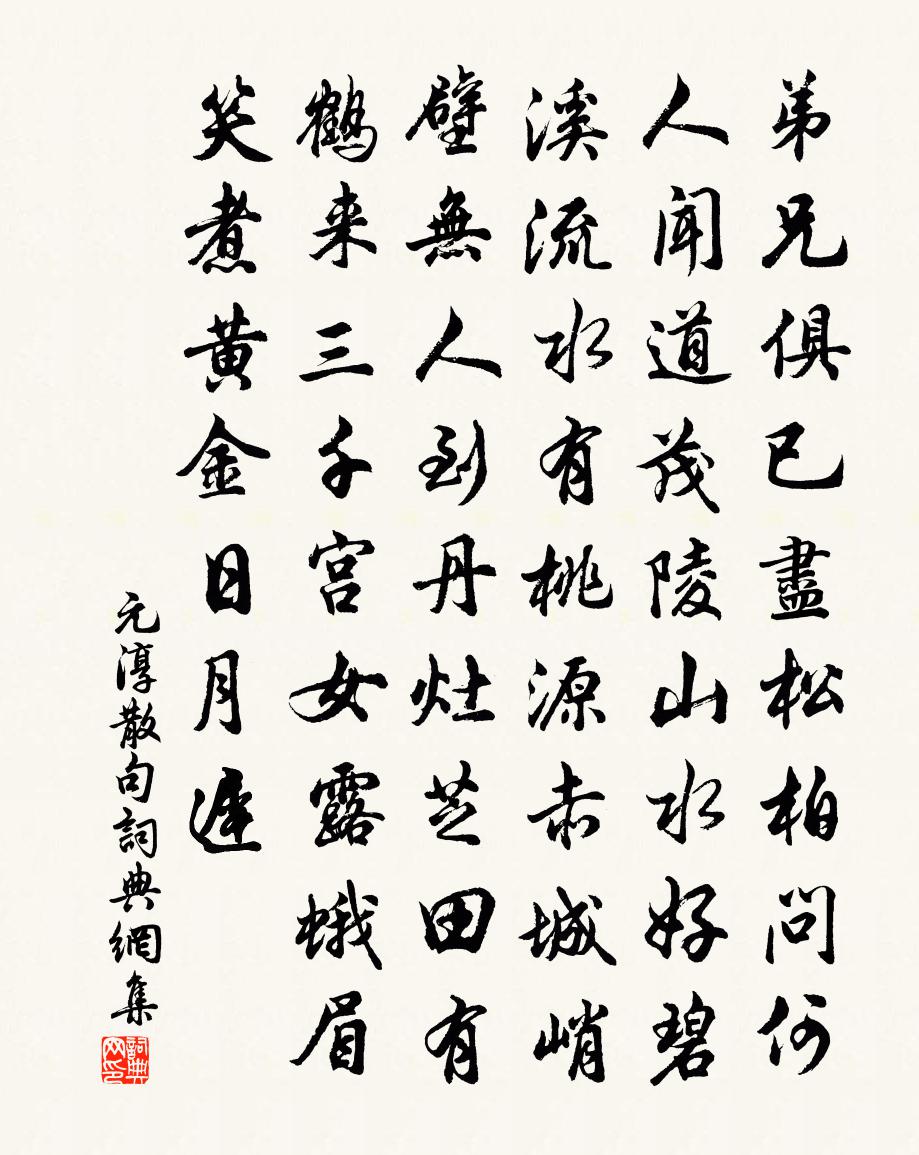 弟兄俱已盡松柏問何
人聞道茂陵山水好碧
溪流水有桃源赤城峭
壁無人到丹灶芝田有
鶴来三千宫女露蛾眉
笑煮黄金日月遲
元淳散句詞典網集
詞典网印